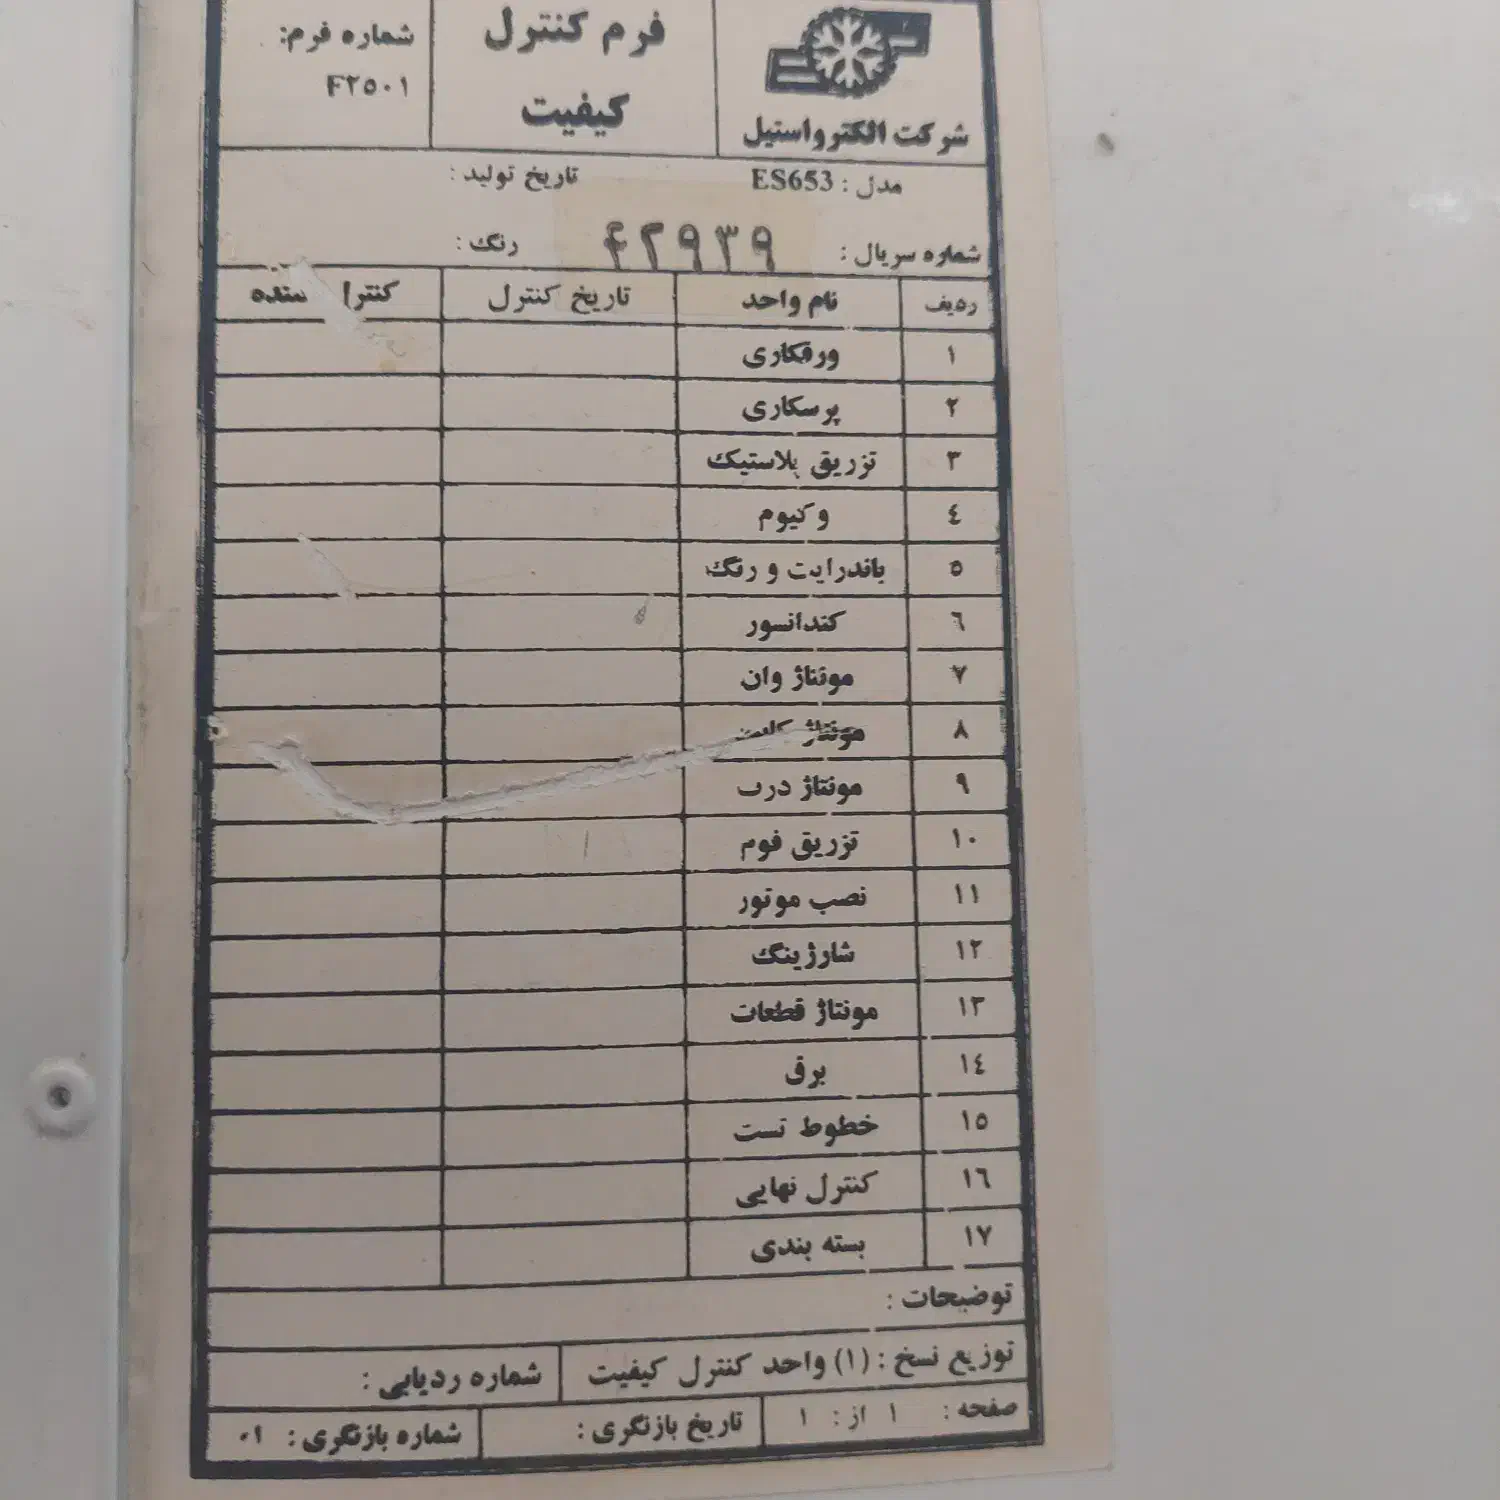 شرکت الکترواستیل
فرم کنترل
کیفیت
شماره فرم:
F۲۵۰۱
مدل : ES653
تاریخ تولید :
شماره سریال : ۴۲۹۳۹
رنگ :
ردیف نام واحد تاریخ کنترل کنترل
۱ ورقکاری
۲ پرسکاری
۳ تزریق پلاستیک
٤ وکیوم
۵ باندرایت و رنگ
٦ کندانسور
۷ مونتاژ وان
۸ مونتاژ
۹ مونتاژ درب
۱۰ تزریق فوم
۱۱ نصب موتور
۱۲ شارژینگ
۱۳ مونتاژ قطعات
۱٤ برق
۱۵ خطوط تست
۱٦ کنترل نهایی
۱۷ بسته بندی
توضیحات :
توزیع نسخ : (۱) واحد کنترل کیفیت شماره ردیابی :
صفحه : ۱ از : ۱ تاریخ بازنگری : شماره بازنگری : ۰۱